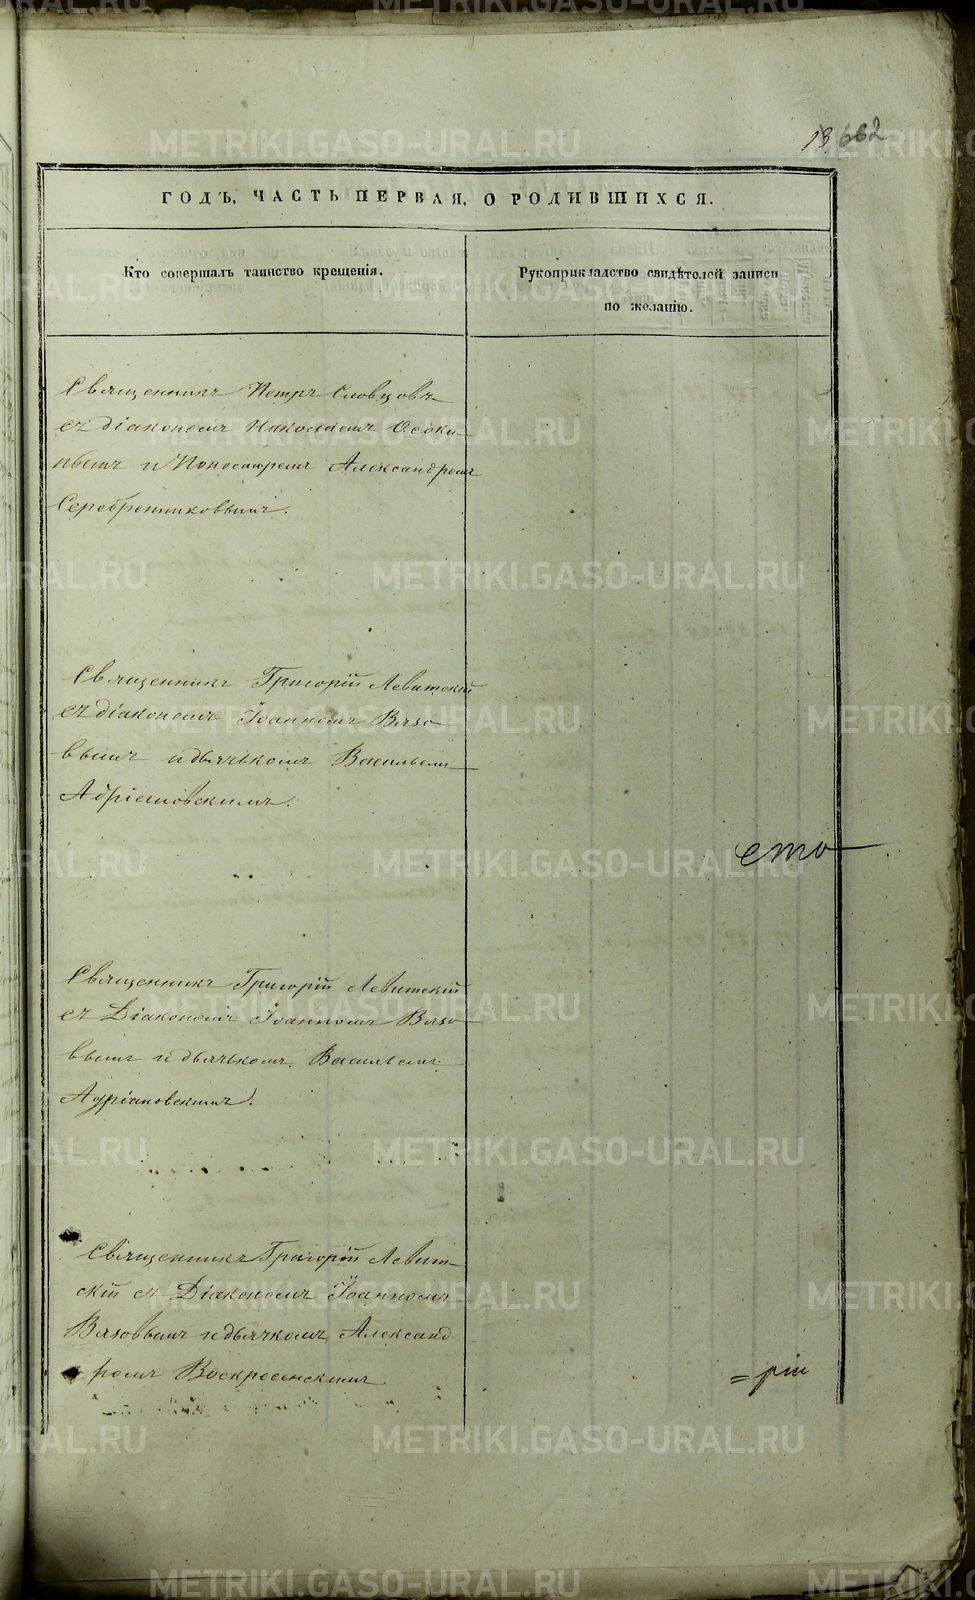 13 662
ГОДЪ, ЧАСТЬ ПЕРВАЯ, О РОДИВШИХСЯ.
Кто совершалъ таинство крещенія.
Рукоприкладство свидѣтелей записи
по желанію.
Священникъ Петръ Словцовъ
съ діакономъ Николаемъ Осоки-
нымъ и Пономаремъ Александромъ
Серебренниковымъ.
Священникъ Григорій Левитскій
съ діакономъ Іоанномъ Вязо
вымъ и дьячькомъ Васильемъ
Адріановскимъ.
ето
Священникъ Григорій Левитскій
съ Діакономъ Іоанномъ Вязо
вымъ и дьячькомъ Васильемъ
Адріановскимъ.
Священникъ Григорій Левит-
скій съ Діакономъ Іоанномъ
Вязовымъ и дьячкомъ Александ
ромъ Воскресенскимъ
= ріи
METRIKI.GASO-URAL.RU